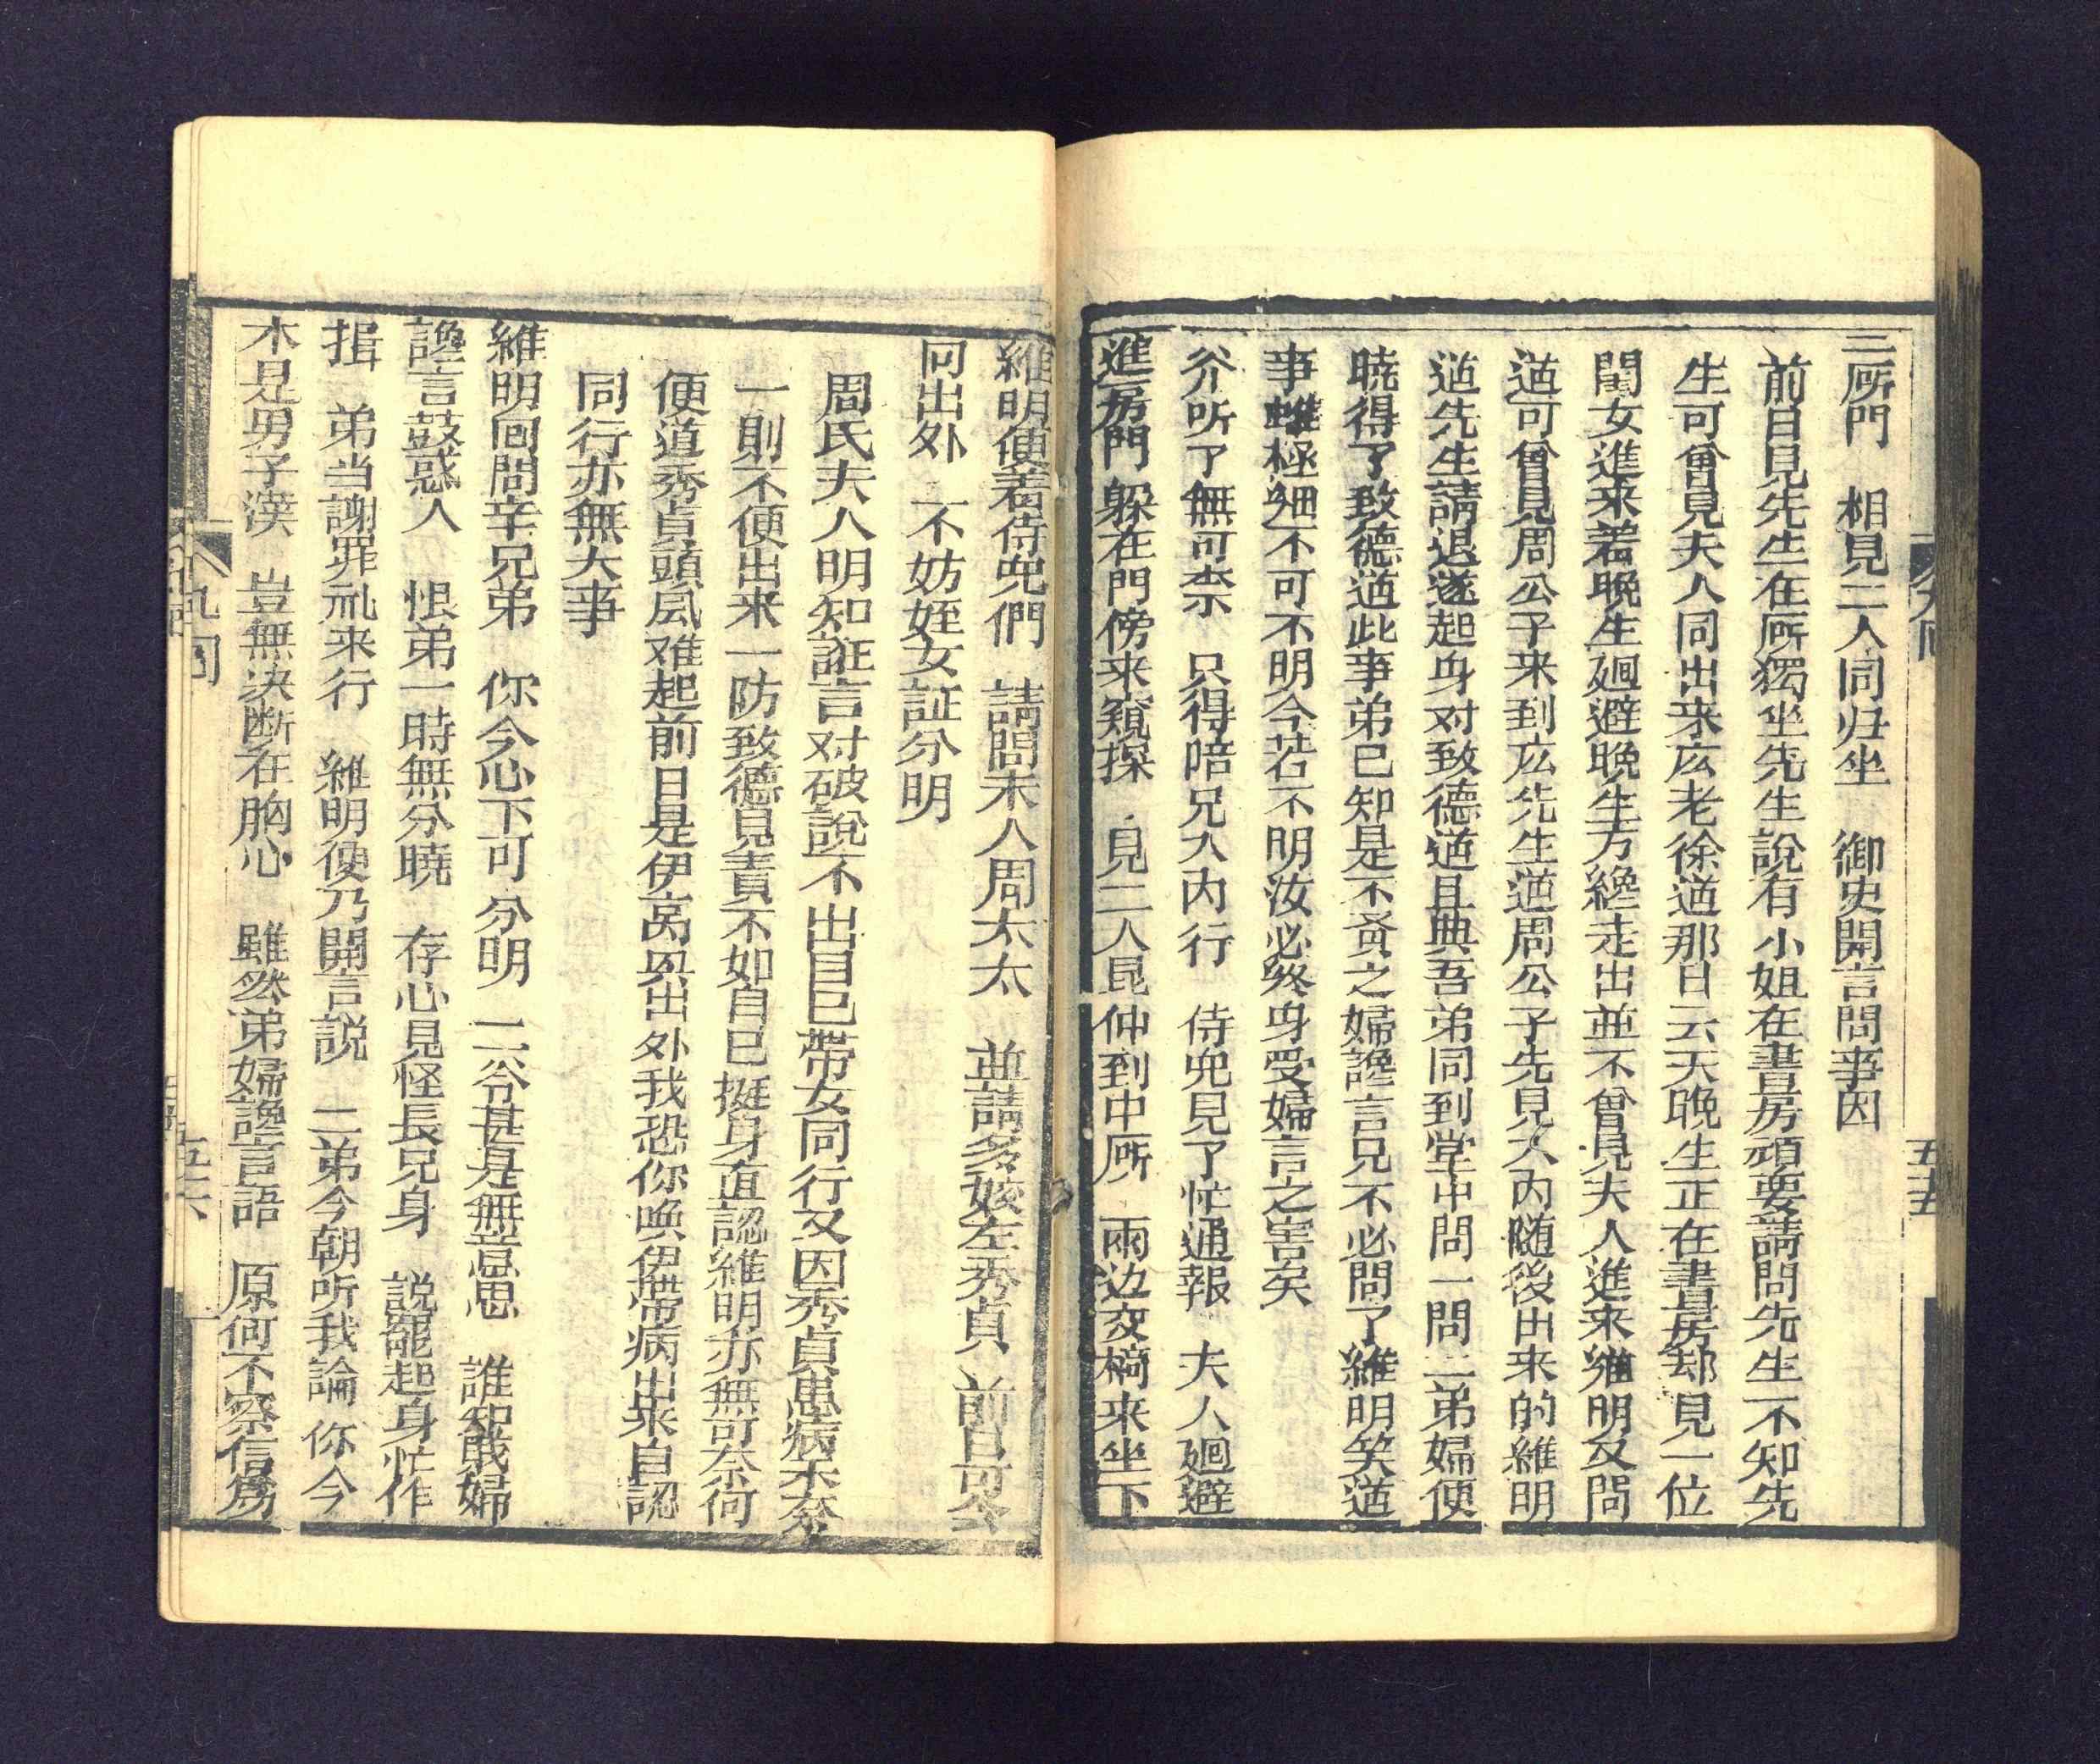 三厛門　相見二人同归坐　御史開言問事因
前日見先生在厛獨坐先生說有小姐在書房頑耍請問先生不知先
生可曾見夫人同出来広老徐道那日云天晚生正在書房却見一位
閨女進来着晚生廻避晚生方纔走出並不曾見夫人進来維明又問
道可曾見周公子来到広先生道周公子先見大内随後出来的維明
道先生請退遂起身对致德道且與吾弟同到堂中問一問二弟婦便
曉得了致德道此事弟已知是不賢之婦讒言兄不必問了維明笑道
事雖極細不可不明今若不明汝必終身受婦言之害矣
介听了無可奈　只得啨兄入内行　侍児見了忙通報　夫人廻避
進房門　躲在門傍来窺探　見二人昆仲到中厛　兩边交椅来坐下
九回
五十五
維明便着侍児們　請問夫人周太太　並請多姣左秀貞　前日可公
同出外　不妨姪女証分明
周氏夫人明知誑言对破說不出自已帶女同行又因秀貞患病不奈
一則不便出来一防致德見責不如自已挺身直認維明亦無可奈何
便道秀貞頭風难起前日是伊窩男出外我恐你喚伊帶病出来自認
同行亦無大事
維明回問辛兄弟　你今心下可分明　二爷甚是無意思　誰知賤婦
讒言鼓惑人　恨弟一時無分曉　存心見怪長兄身　説罷起身忙作
揖　弟当謝罪礼来行　維明便乃開言説　二弟今朝听我論　你今
木是男子漢　豈無决断在胸心　雖然弟婦讒言語　原何不察信為
九回
五十六